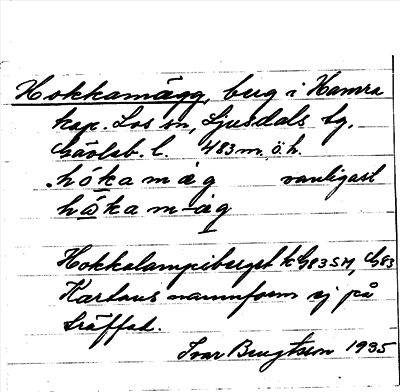 Hokkamägg, berg i Hamra
kap. Los sn, Ljusdals tg.
Gävleb. l. 483 m. ö. h.
hókamäg vanligast
håkam-äg
Hokkalampiberget k G83SM, G83
Kartans namnform ej på
träffad.
Ivar Bengtsson 1935